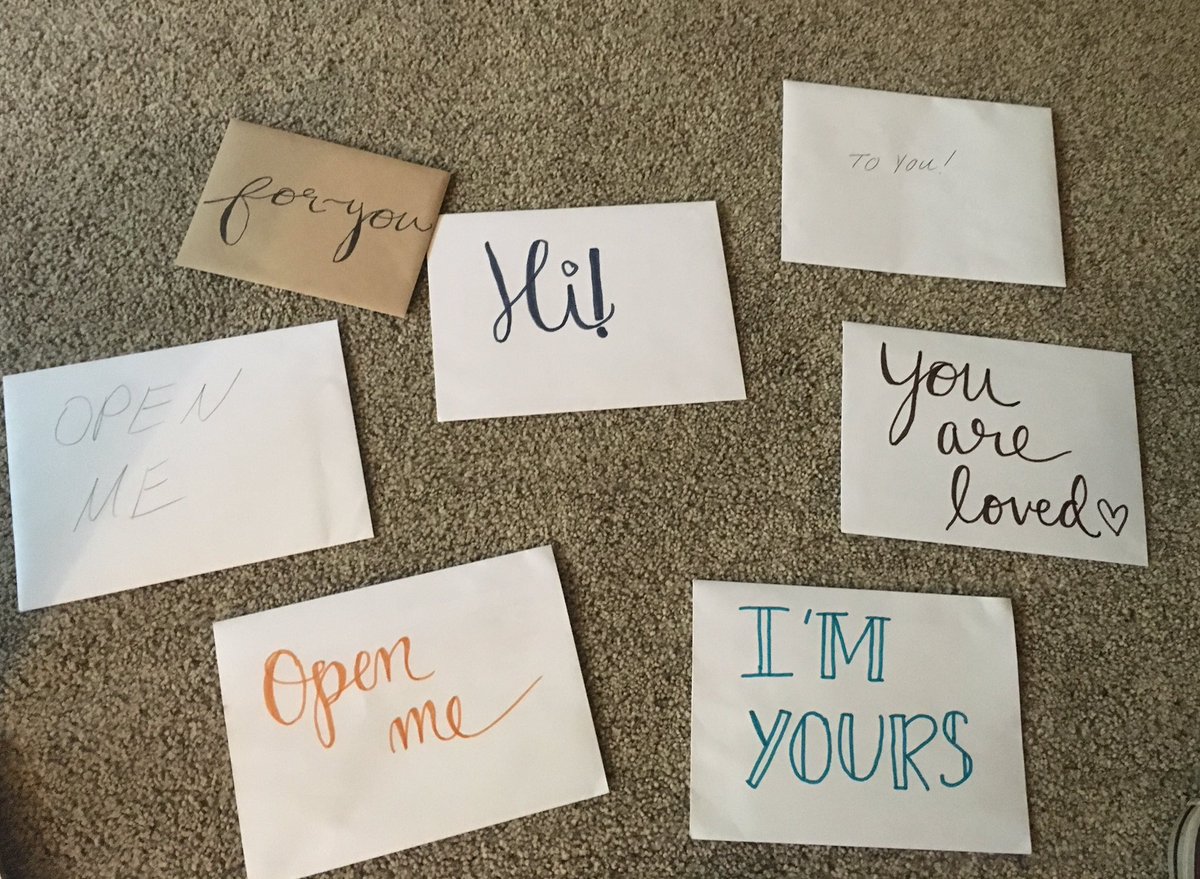 for you
Hi!
TO YOU!
OPEN
ME
You
are
loved
Open
me
I'M
YOURS